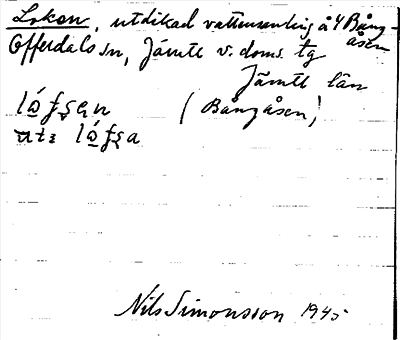 Lokan, utdikad vattensamling å 4 Bång-
åsen
Offerdals sn, Jämtl v. doms. tg
Jämtl län
(Bångåsen)
Nils Simonsson 1945